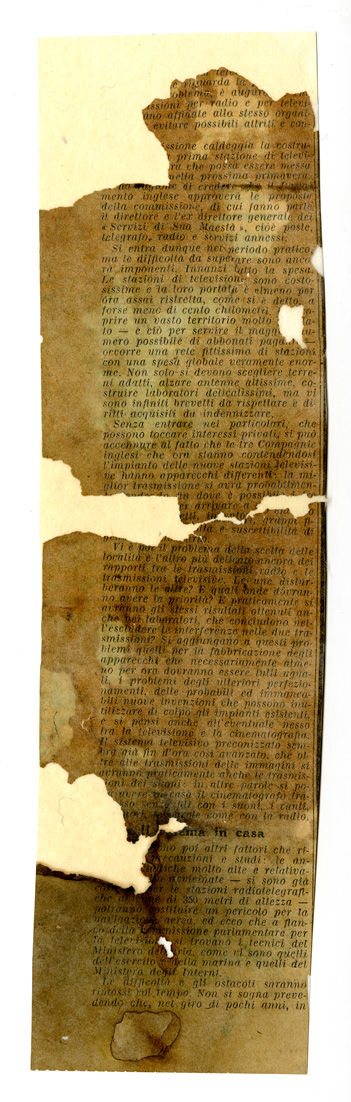 guarda la
oblema, è augur
ssioni per radio e per televi-
ano affidate allo stesso organi-
evitare possibili attriti e con-
ssione caldeggia la costru-
prima stazione di televi-
ra che possa essere messa
nella prossima primavera.
di creder
mento inglese approverà le proposte
della commissione, di cui fanno parte
il direttore e l'ex direttore generale dei
« Servizi di Sua Maestà », cioè poste,
telegrafo, radio e servizi annessi.
Si entra dunque nel periodo pratico,
ma le difficoltà da superare sono anco
ra imponenti. Innanzi tutto la spesa.
Le stazioni di televisione sono costo-
sissime e la loro portata è almeno per
ora assai ristretta, come si è detto, a
forse meno di cento chilometri.
prire un vasto territorio molto
to — e ciò per servire il maggi
mero possibile di abbonati paga
occorre una rete fittissima di stazioni
con una spesa globale veramente enor-
me. Non solo si devono scegliere terre-
ni adatti, alzare antenne altissime, co-
struire laboratori delicatissimi, ma vi
sono infiniti brevetti da rispettare e di-
ritti acquisiti da indennizzare.
Senza entrare nei particolari, che
possono toccare interessi privati, si può
accennare al fatto che le tre Compagnie
inglesi che ora stanno contendendosi
l'impianto delle nuove stazioni televisi-
ve hanno apparecchi differenti: la mi-
glior trasmissione si avrà probabilmen-
un dove è possibi
er arrivare a
gruppi fi
e suscettibilità di
Vi è poi il problema della scelta delle
località e l'altro più delicato ancora dei
rapporti fra le trasmissioni radio e le
trasmissioni televisive. Le une distur-
beranno le altre? E quali dovran-
no avere la priorità? E praticamente si
avranno gli stessi risultati ottenuti an-
che nei laboratori, che concludono nel-
l'escludere le interferenze nelle due tra-
smissioni? Si aggiungano a questi pro-
blemi quelli per la fabbricazione degli
apparecchi che necessariamente alme-
no per ora dovranno essere tutti ugua-
li, i problemi degli ulteriori perfezio-
namenti, delle probabili ed immanca-
bili nuove invenzioni che possono inu-
tilizzare di colpo gli impianti esistenti,
e si pensi anche all'eventuale nesso
fra la televisione e la cinematografia.
Il sistema televisivo preconizzato sem-
bra già fin d'ora così avanzato, che ol-
tre alle trasmissioni delle immagini si
avranno praticamente anche le trasmis-
sioni dei suoni: in altre parole si po-
avere in casa il cinematografo tra-
sso senz'altro con i suoni, i canti,
come con la radio.
Il cinema in casa
no poi altri fattori che ri-
recauzioni e studi: le an-
tiche molto alte e relativa-
numerose — si sono già
per le stazioni radiotelegrafi-
che antenne di 350 metri di altezza —
potranno costituire un pericolo per la
navigazione aerea, ed ecco che a fian-
co della commissione parlamentare per
la televisione si trovano i tecnici del
Ministero dell'aria, come vi sono quelli
dell'esercito e della marina e quelli del
Ministero degli Interni.
Le difficoltà e gli ostacoli saranno
rimossi col tempo. Non si sogna preve-
dendo che, nel giro di pochi anni, in